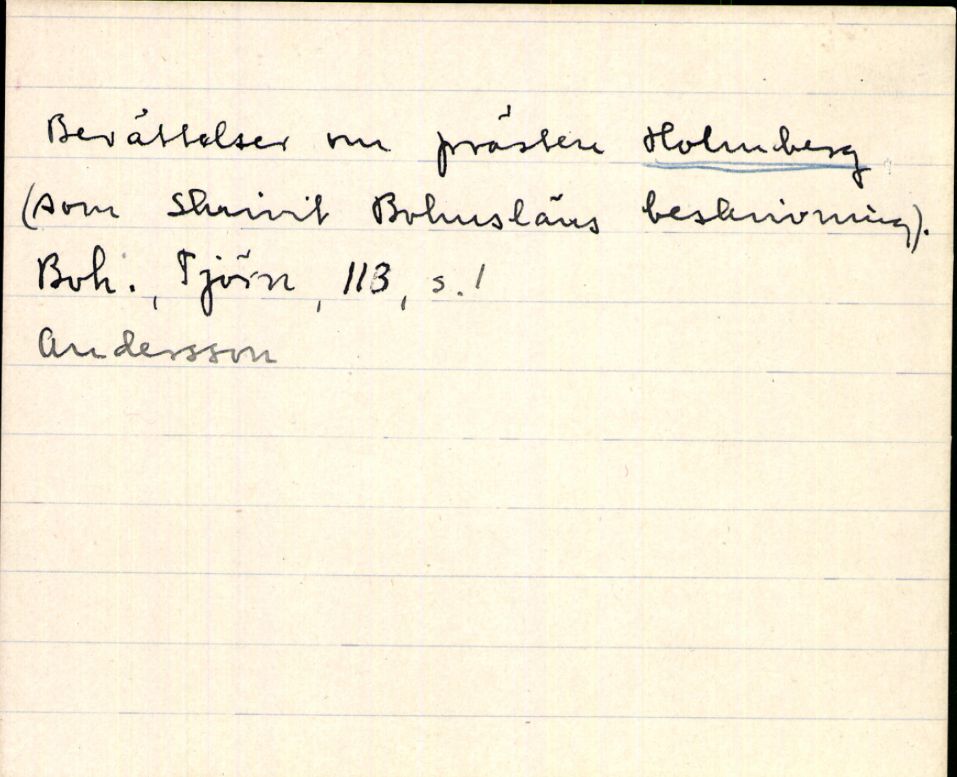 Berättelser om prästen Holmberg
(som skrivit Bohusläns beskrivning).
Boh., Tjörn, 113, s. 1
Andersson